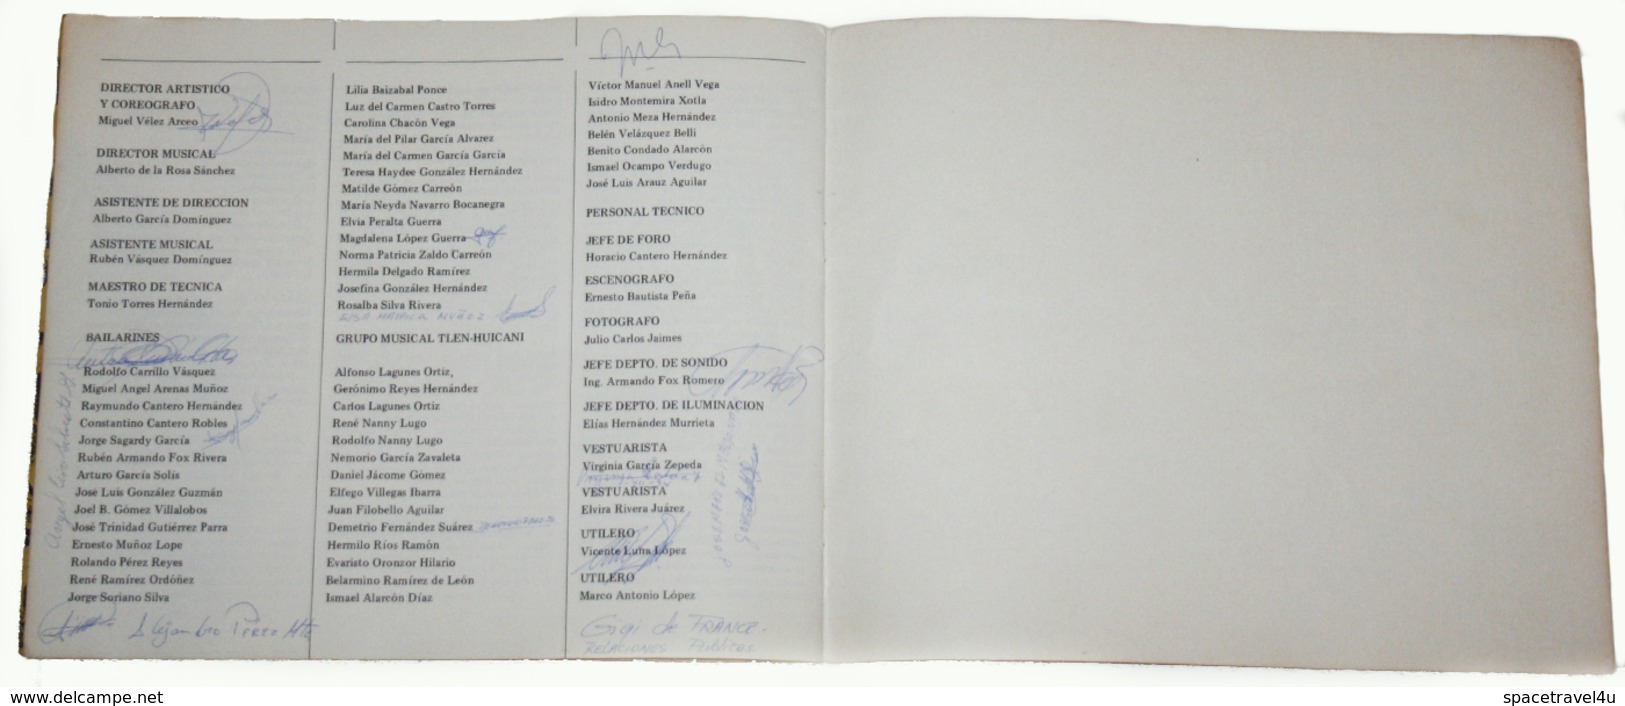 DIRECTOR ARTISTICO
Y COREOGRAFO
Miguel Vélez Arceo
DIRECTOR MUSICAL
Alberto de la Rosa Sánchez
ASISTENTE DE DIRECCION
Alberto García Domínguez
ASISTENTE MUSICAL
Rubén Vásquez Domínguez
MAESTRO DE TECNICA
Tonio Torres Hernández
BAILARINES
Rodolfo Carrillo Vásquez
Miguel Angel Arenas Muñoz
Raymundo Cantero Hernández
Constantino Cantero Robles
Jorge Sagardy García
Rubén Armando Fox Rivera
Arturo García Solís
José Luis González Guzmán
Joel B. Gómez Villalobos
José Trinidad Gutiérrez Parra
Ernesto Muñoz Lope
Rolando Pérez Reyes
René Ramírez Ordóñez
Jorge Soriano Silva
Alejandro Pérez
Lilia Baizabal Ponce
Luz del Carmen Castro Torres
Carolina Chacón Vega
María del Pilar García Alvarez
María del Carmen García García
Teresa Haydee González Hernández
Matilde Gómez Carreón
María Neyda Navarro Bocanegra
Elvia Peralta Guerra
Magdalena López Guerra
Norma Patricia Zaldo Carreón
Hermila Delgado Ramírez
Josefina González Hernández
Rosalba Silva Rivera
MUÑOZ
GRUPO MUSICAL TLEN-HUICANI
Alfonso Lagunes Ortiz,
Gerónimo Reyes Hernández
Carlos Lagunes Ortiz
René Nanny Lugo
Rodolfo Nanny Lugo
Nemorio García Zavaleta
Daniel Jácome Gómez
Elfego Villegas Ibarra
Juan Filobello Aguilar
Demetrio Fernández Suárez
Hermilo Ríos Ramón
Evaristo Oronzor Hilario
Belarmino Ramírez de León
Ismael Alarcón Díaz
Víctor Manuel Anell Vega
Isidro Montemira Xotla
Antonio Meza Hernández
Belén Velázquez Belli
Benito Condado Alarcón
Ismael Ocampo Verdugo
José Luis Arauz Aguilar
PERSONAL TECNICO
JEFE DE FORO
Horacio Cantero Hernández
ESCENOGRAFO
Ernesto Bautista Peña
FOTOGRAFO
Julio Carlos Jaimes
JEFE DEPTO. DE SONIDO
Ing. Armando Fox Romero
JEFE DEPTO. DE ILUMINACION
Elías Hernández Murrieta
VESTUARISTA
Virginia García Zepeda
VESTUARISTA
Elvira Rivera Juárez
UTILERO
Vicente Luna López
UTILERO
Marco Antonio López
Gigi de FRANCE.
RELACIONES Publicas
www.delcampe.net
spacetravel4u